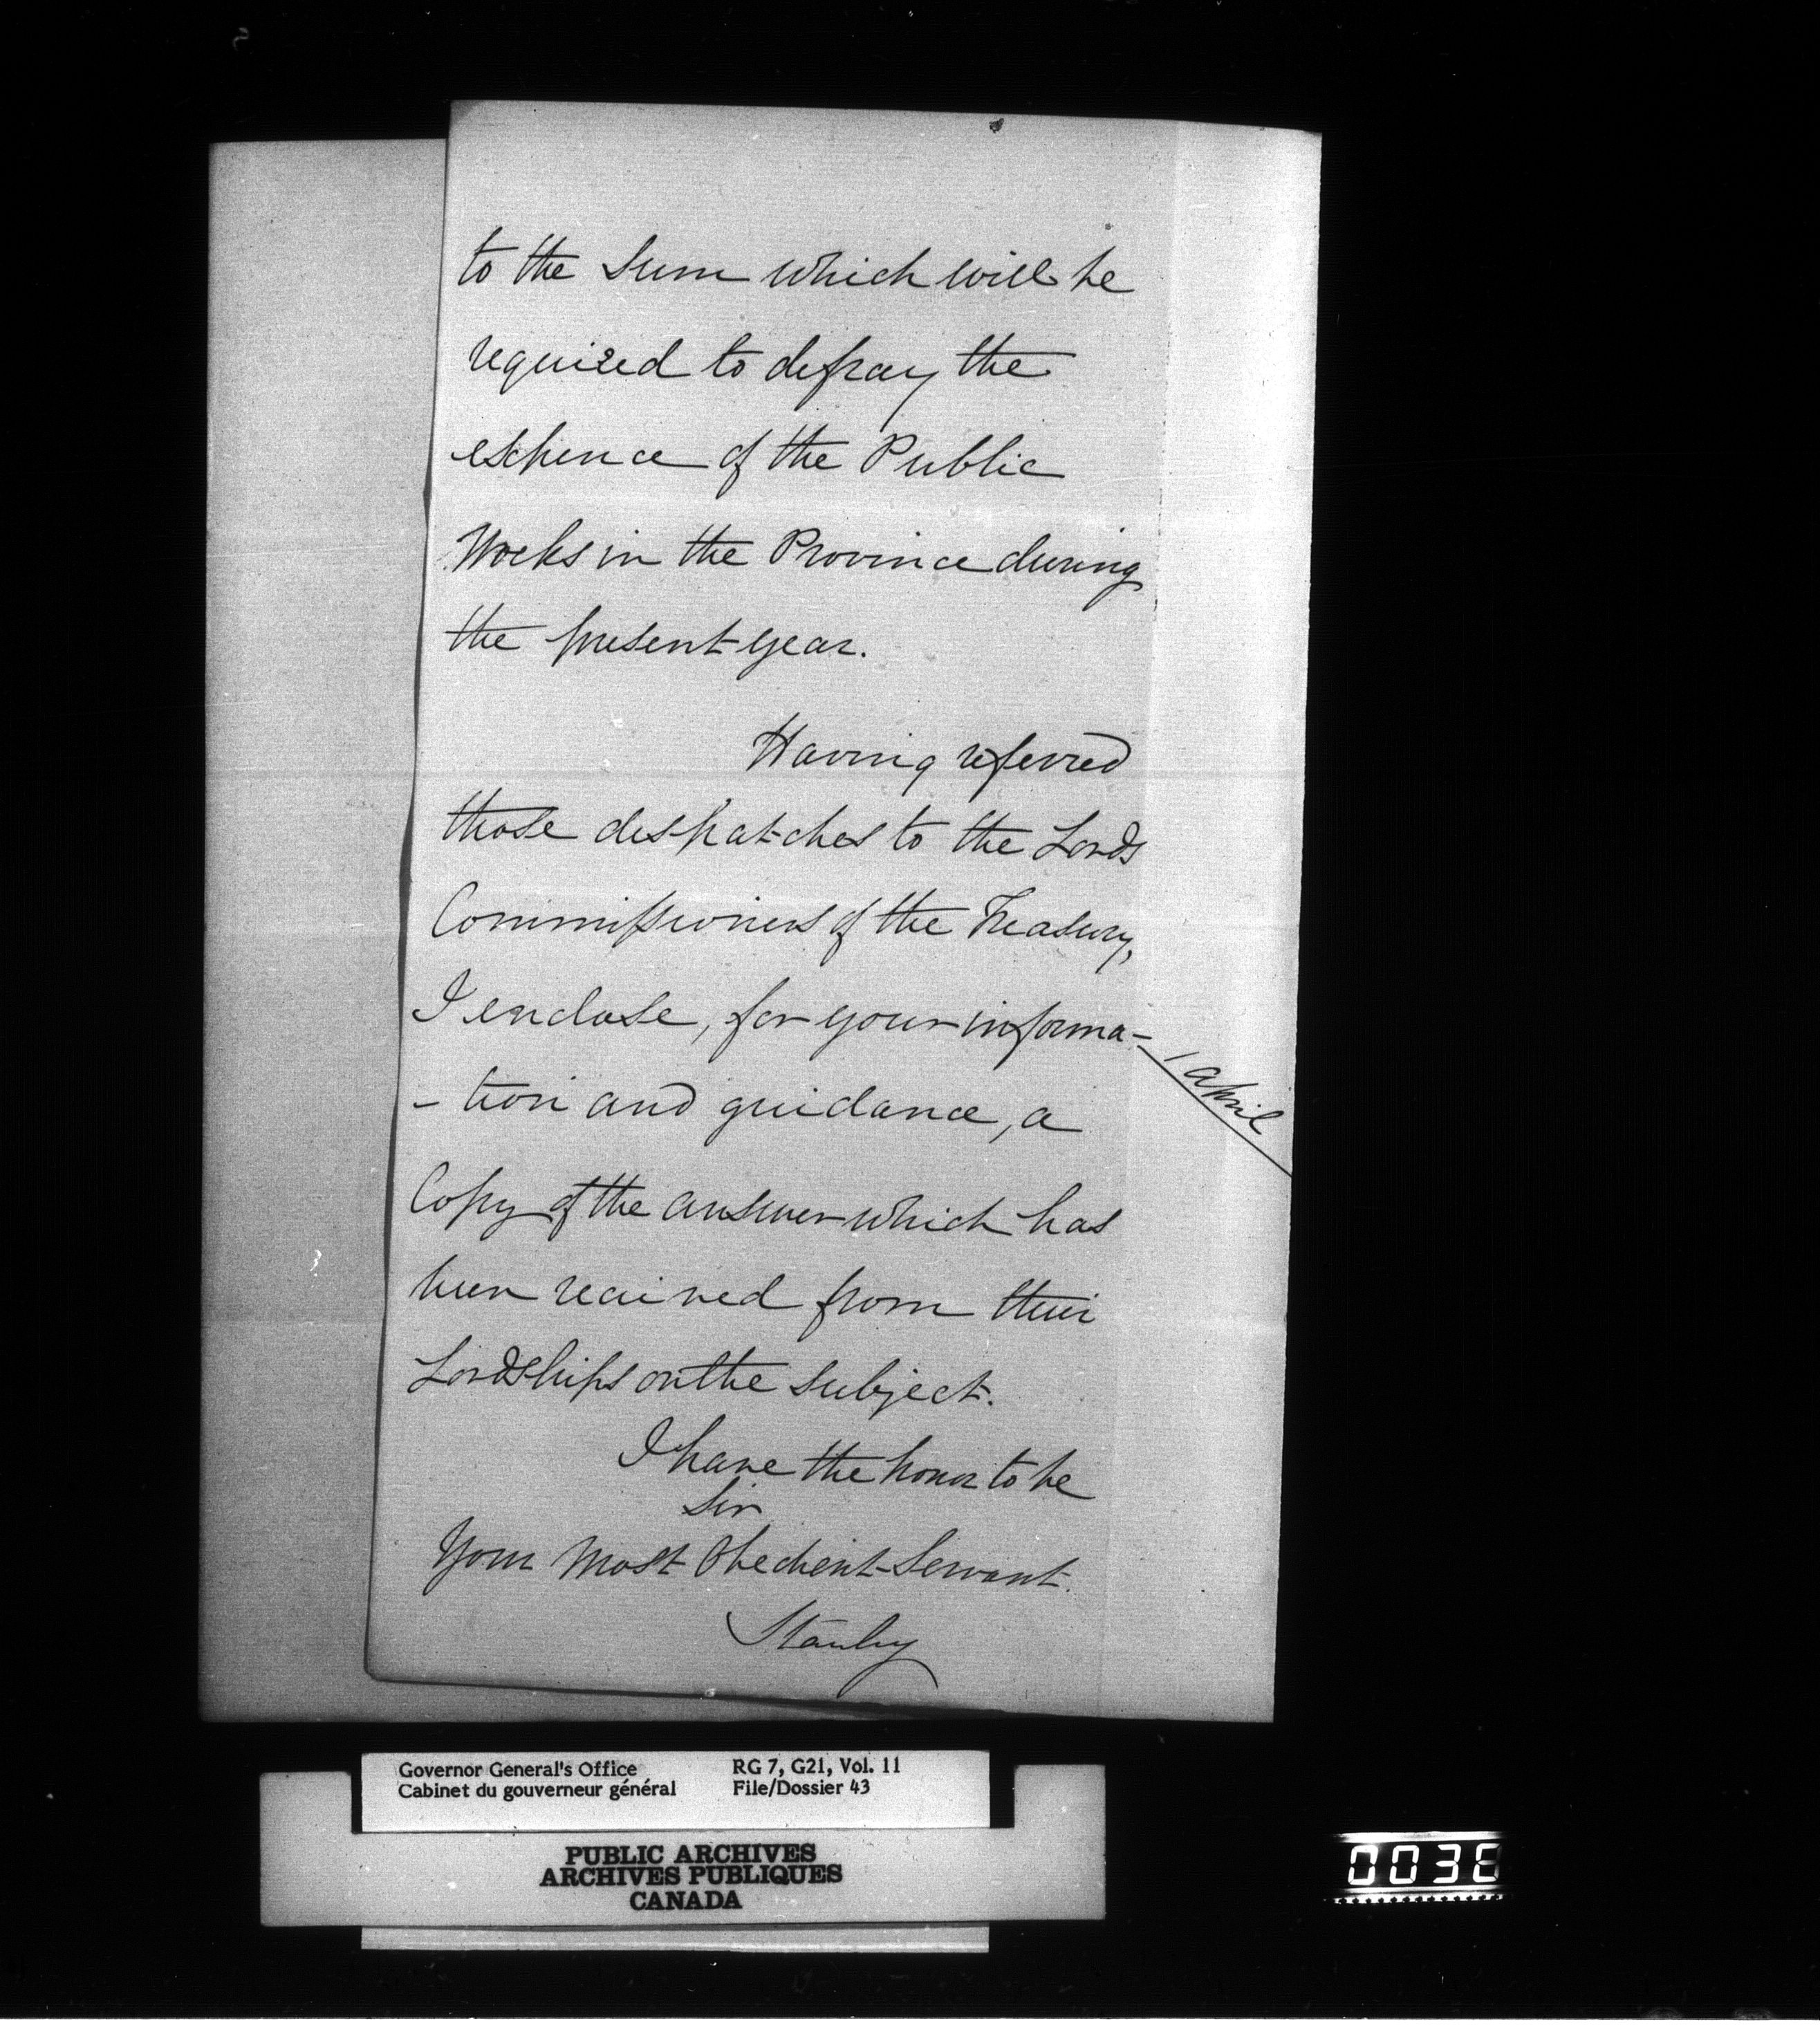 to the Sum which will be
required to defray the
expence of the Public
Works in the Province during
the present year.
Having referred
those despatches to the Lords
Commissioners of the Treasury,
I enclose, for your informa-
1 April
-tion and guidance, a
Copy of the answer which has
been received from their
Lordships on the subject.
I have the honor to be
Sir
Your Most Obedient Servant.
Stanley
Governor General's Office
Cabinet du gouverneur général
RG 7, G21, Vol. 11
File/Dossier 43
PUBLIC ARCHIVES
ARCHIVES PUBLIQUES
CANADA